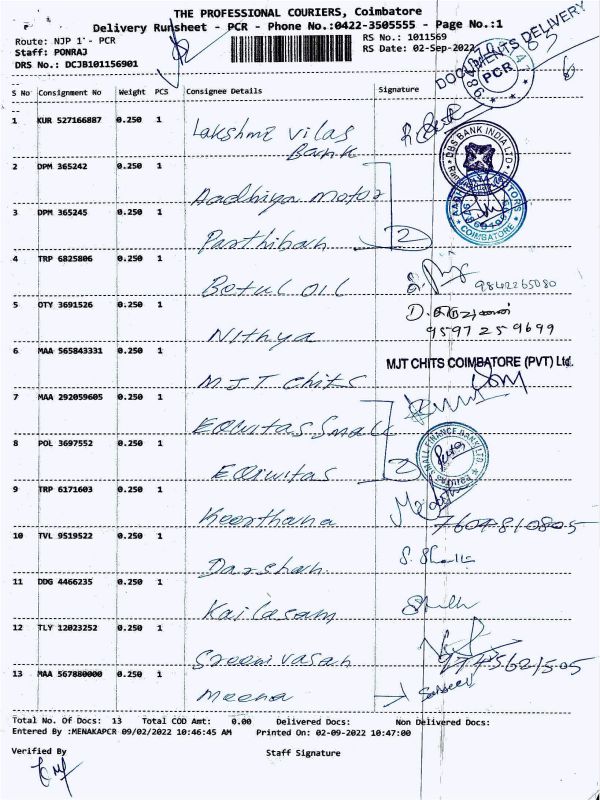 THE PROFESSIONAL COURIERS, Coimbatore
Delivery Runsheet - PCR - Phone No.:0422-3505555 - Page No.:1
Route: NJP 1'- PCR
RS No.: 1011569
Staff: PONRAJ
RS Date: 02-Sep-2022
DRS No.: DCJB101156901
DOCUMENTS DELIVERY
PCR
S No Consignment No Weight PCS Consignee Details Signature
1 KUR 527166887 0.250 1 Lakshmi Vilas
Bank
DBS BANK INDIA LTD
2 DPM 365242 0.250 1 Aadhiya motor
3 DPM 365245 0.250 1 Parthiban 2
COIMBATORE
4 TRP 6825806 0.250 1 Botul OIL
9842265080
5 OTY 3691526 0.250 1 Nithya
9597259699
6 MAA 565843331 0.250 1 MJT Chits
MJT CHITS COIMBATORE (PVT) Ltd.
7 MAA 292059605 0.250 1 EQuitas Small
8 POL 3697552 0.250 1 EQuitas 2
SMALL FINANCE BANK LTD
9 TRP 6171603 0.250 1 Keerthana
7604810805
10 TVL 9519522 0.250 1 Darshan
11 DDG 4466235 0.250 1 Kailasam
12 TLY 12023252 0.250 1 Sreenivasan
9745621505
13 MAA 567880000 0.250 1 Meena
Total No. Of Docs: 13 Total COD Amt: 0.00 Delivered Docs: Non Delivered Docs:
Entered By :MENAKAPCR 09/02/2022 10:46:45 AM Printed On: 02-09-2022 10:47:00
Verified By Staff Signature